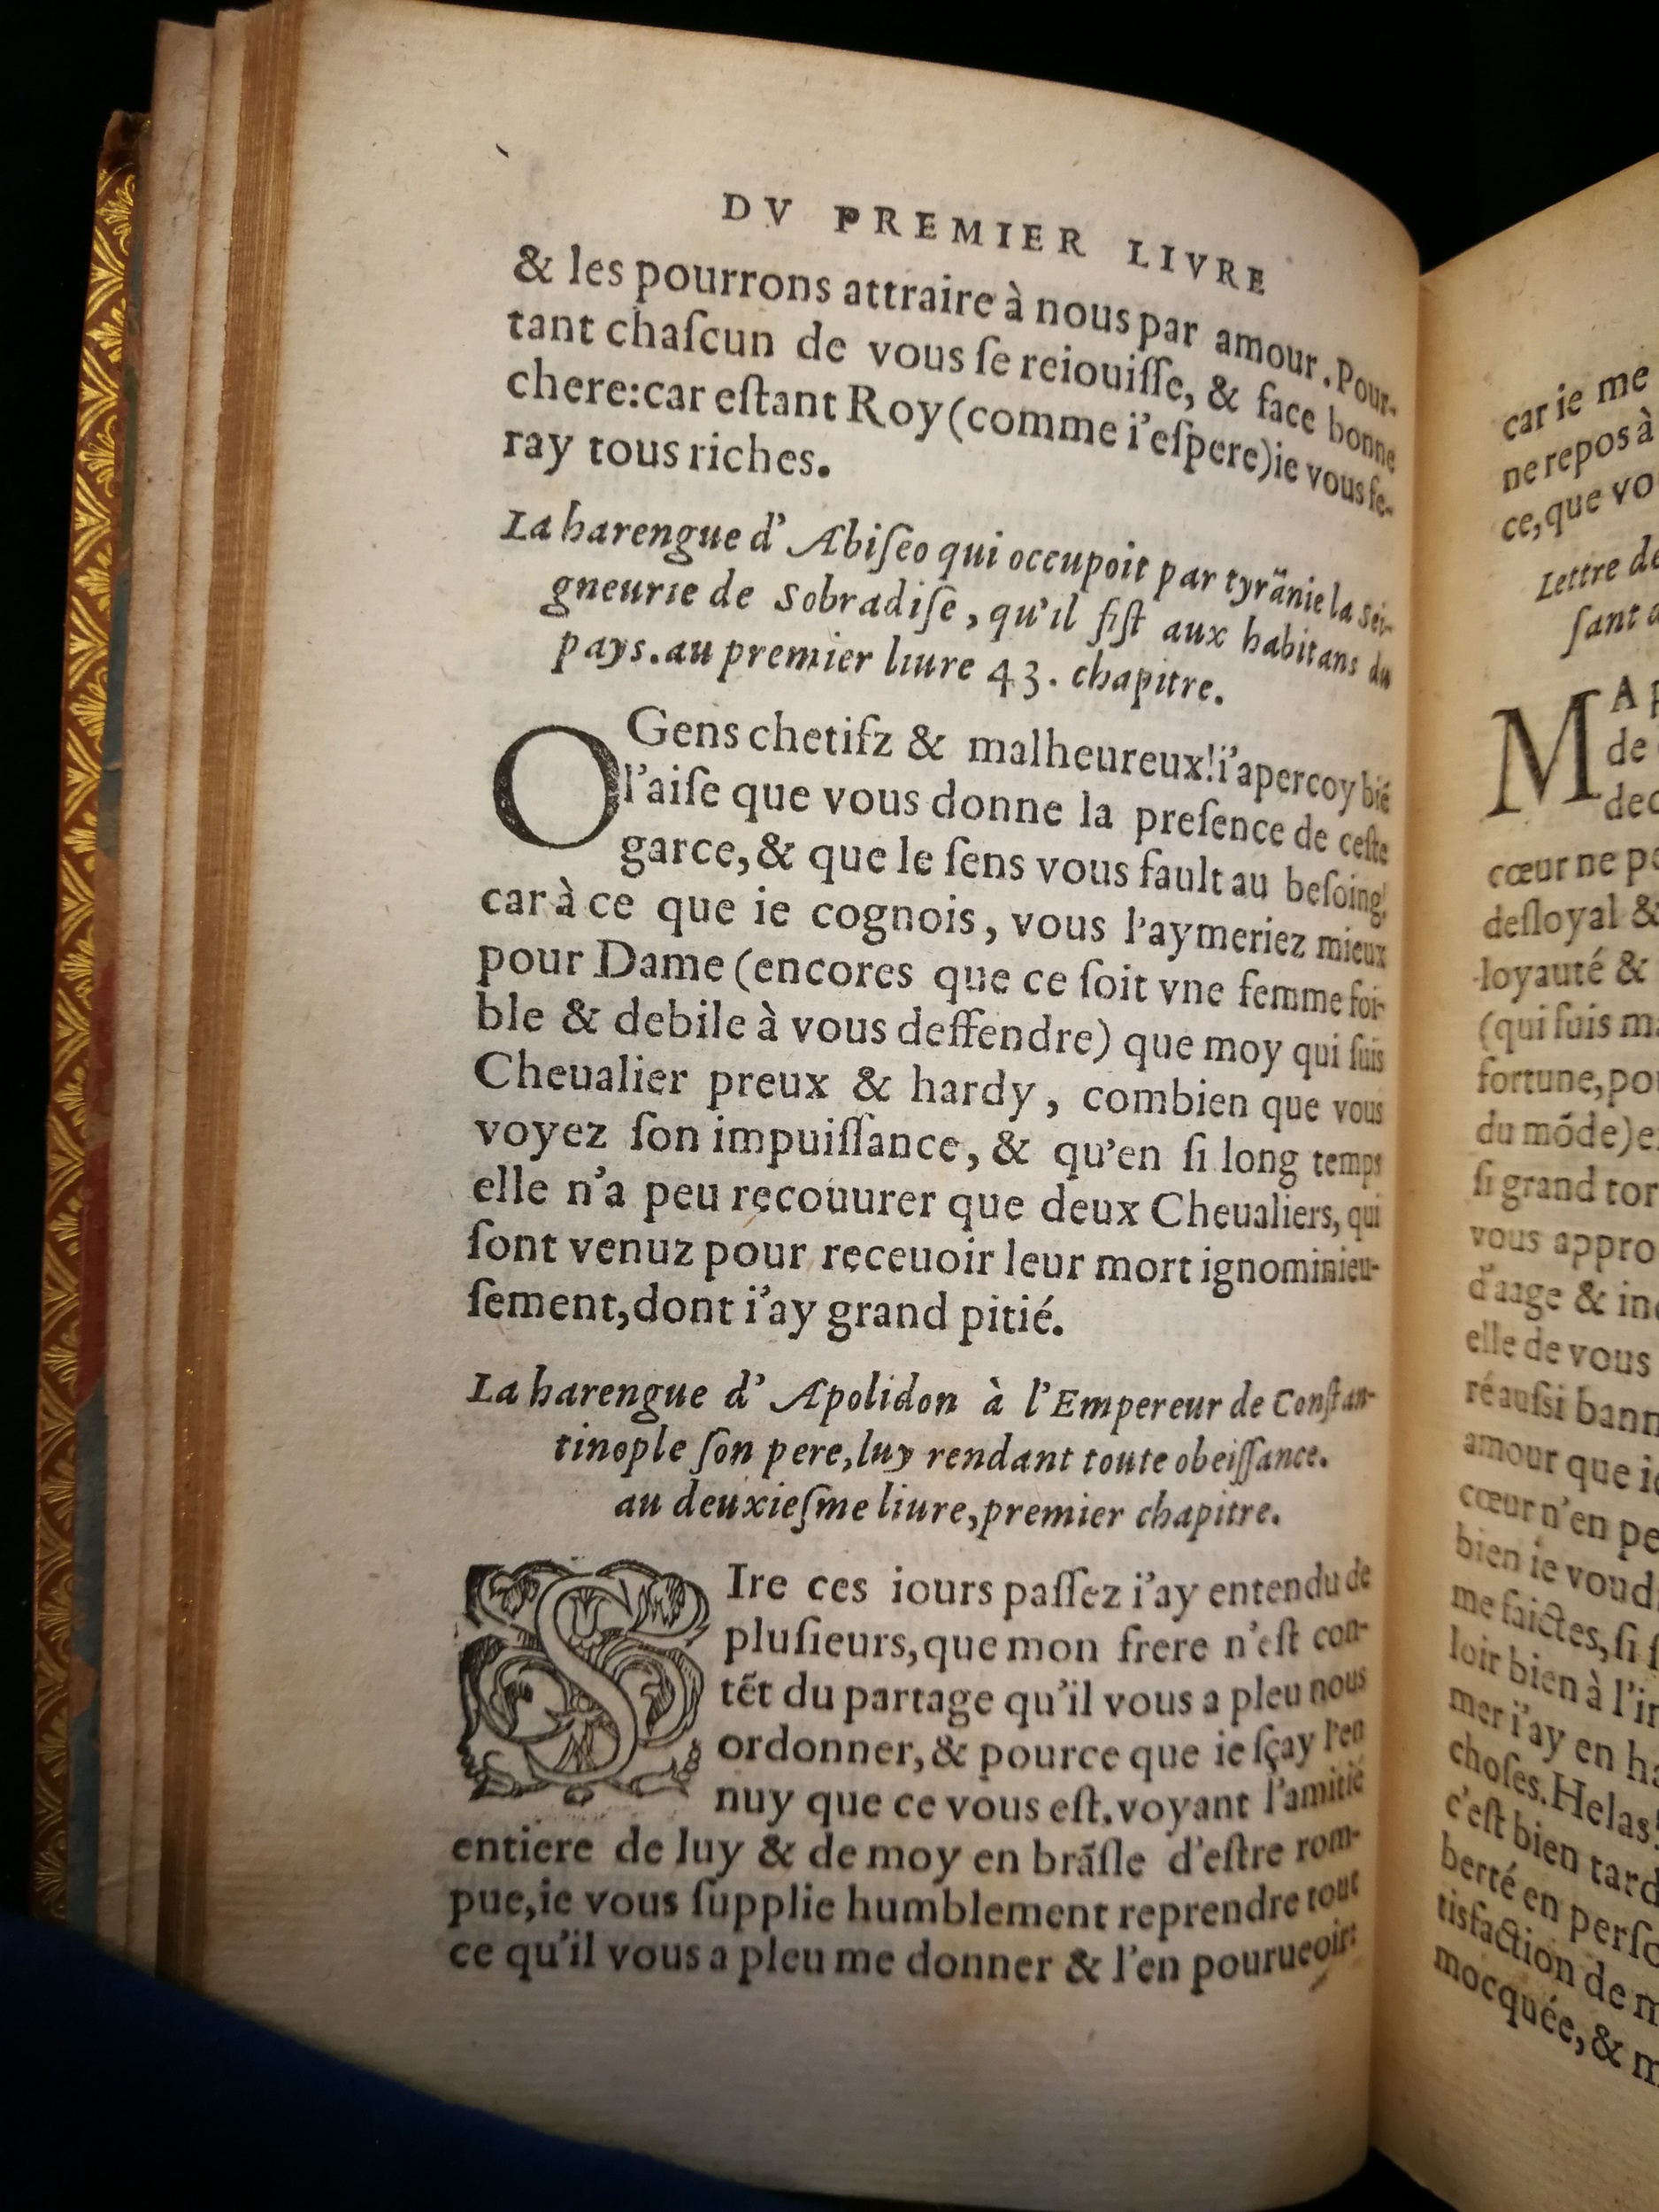 DV PREMIER LIVRE
& les pourrons attraire à nous par amour. Pour-
tant chaſcun de vous ſe reiouiſſe, & face bonne
chere: car eſtant Roy (comme i'eſpere) ie vous fe-
ray tous riches.
La harengue d'Abiſeo qui occupoit par tyrãnie la Sei-
gneurie de Sobradiſe, qu'il fiſt aux habitans du
pays. au premier liure 43. chapitre.
O Gens chetifz & malheureux! i'apercoy biẽ
l'aiſe que vous donne la preſence de ceſte
garce, & que le ſens vous fault au beſoing,
car à ce que ie cognois, vous l'aymeriez mieux
pour Dame (encores que ce ſoit vne femme foi-
ble & debile à vous deffendre) que moy qui ſuis
Cheualier preux & hardy, combien que vous
voyez ſon impuiſſance, & qu'en ſi long temps
elle n'a peu recouurer que deux Cheualiers, qui
ſont venuz pour receuoir leur mort ignominieu-
ſement, dont i'ay grand pitié.
La harengue d'Apolidon à l'Empereur de Conſtan-
tinople ſon pere, luy rendant toute obeiſſance.
au deuxieſme liure, premier chapitre.
SIre ces iours paſſez i'ay entendu de
pluſieurs, que mon frere n'eſt con-
tẽt du partage qu'il vous a pleu nous
ordonner, & pource que ie ſçay l'en
nuy que ce vous eſt, voyant l'amitié
entiere de luy & de moy en brãſle d'eſtre rom-
pue, ie vous ſupplie humblement reprendre tout
ce qu'il vous a pleu me donner & l'en pourueoir:
car ie me
ne repos à
ce, que vo
Lettre de
ſant a
MA p
de
dec
cœur ne pe
deſloyal &
loyauté &
(qui ſuis m
fortune, po
du mõde) e
ſi grand tor
vous appro
d'aage & in
elle de vous
ré auſsi bann
amour que ie
cœur n'en pe
bien ie voud
me faictes, ſi ſ
loir bien à l'in
mer i'ay en ha
choſes. Helas!
c'eſt bien tard
berté en perſo
tisfaction de m
mocquée, & m